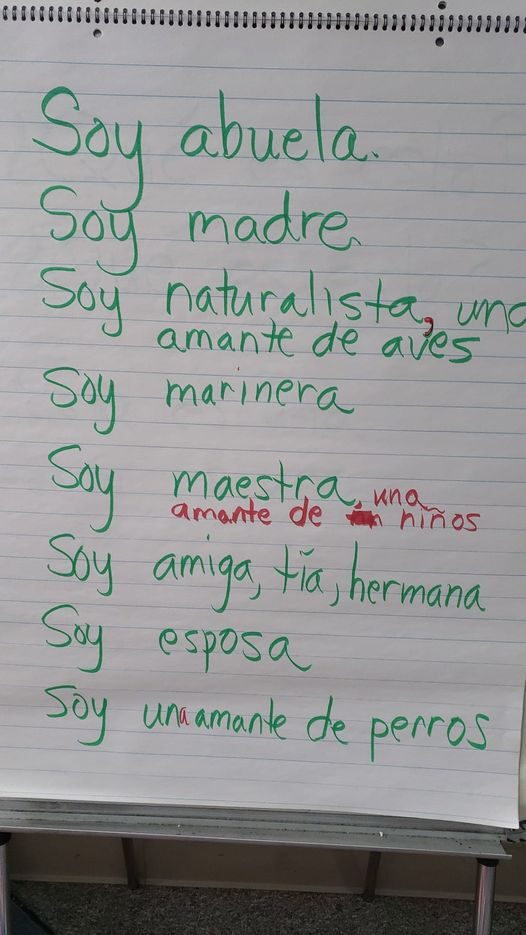 Soy abuela.
Soy madre.
Soy naturalista, una
amante de aves
Soy marinera
Soy maestra, una
amante de niños
Soy amiga, tía, hermana
Soy esposa
Soy una amante de perros